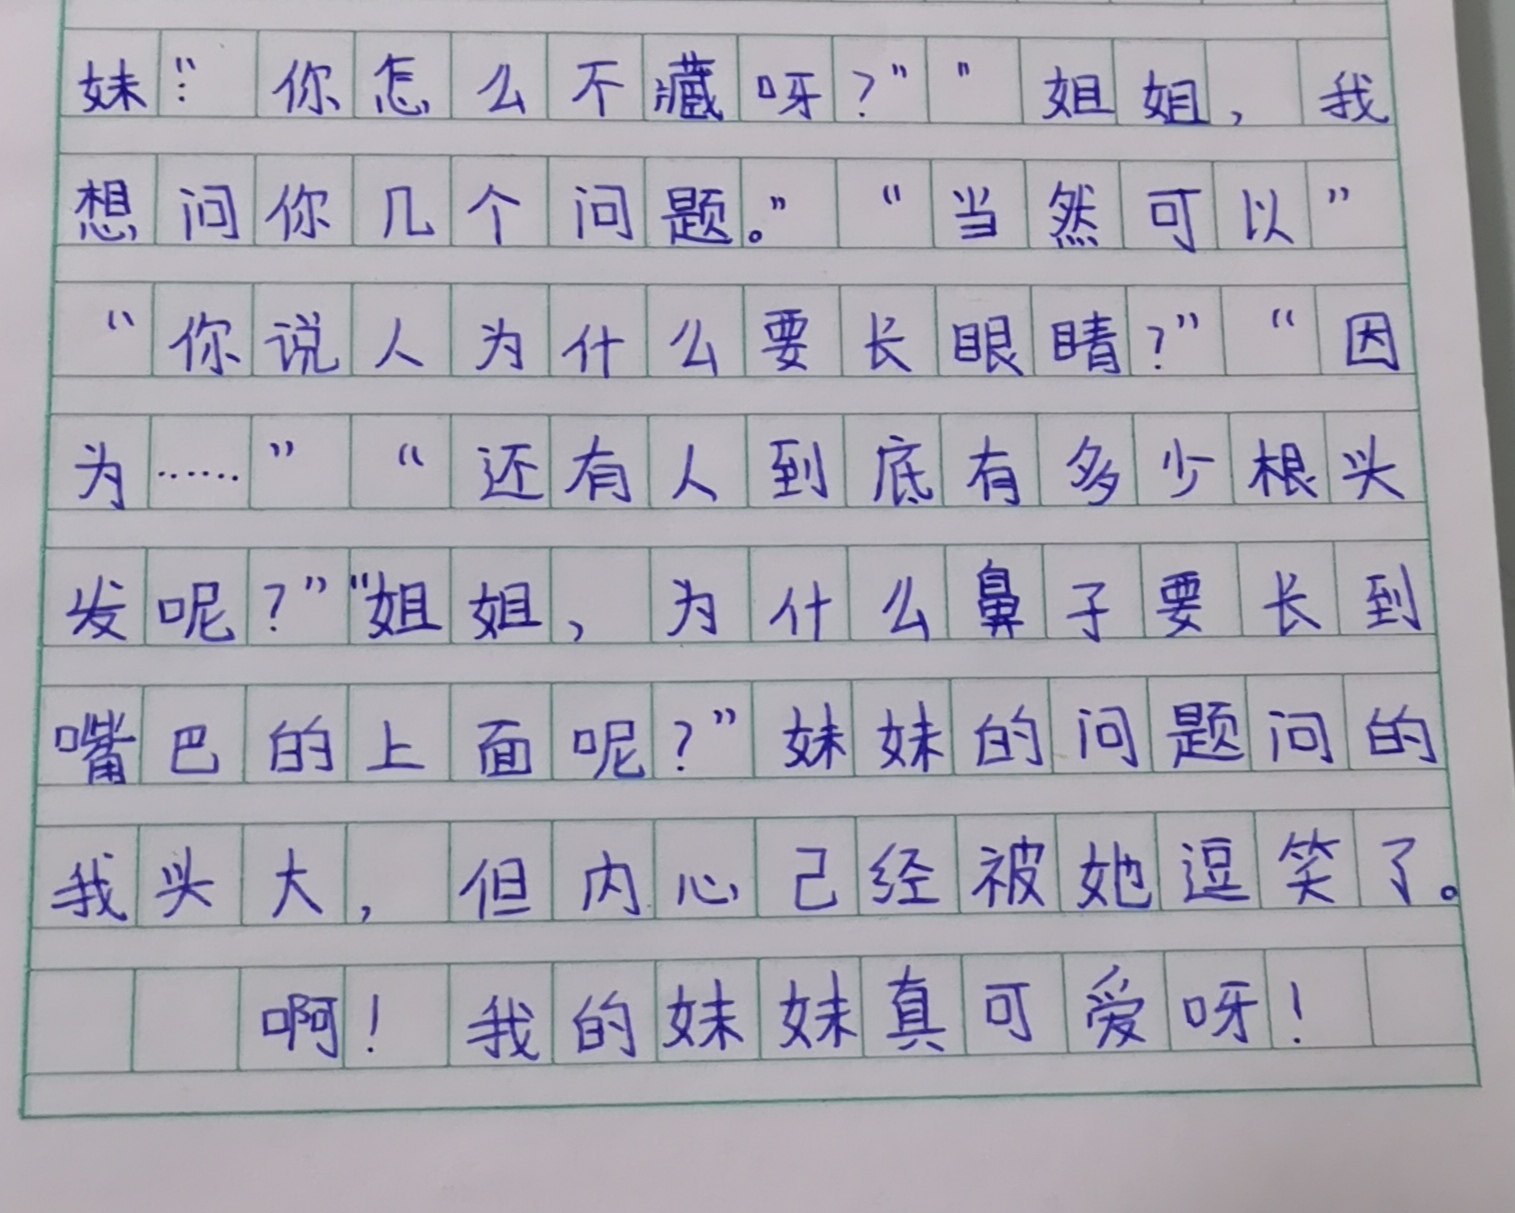 妹：“你怎么不藏呀？”“姐姐，我
想问你几个问题。”“当然可以”
“你说人为什么要长眼睛？”“因
为……”“还有人到底有多少根头
发呢？”“姐姐，为什么鼻子要长到
嘴巴的上面呢？”妹妹的问题问的
我头大，但内心己经被她逗笑了。
啊！我的妹妹真可爱呀！